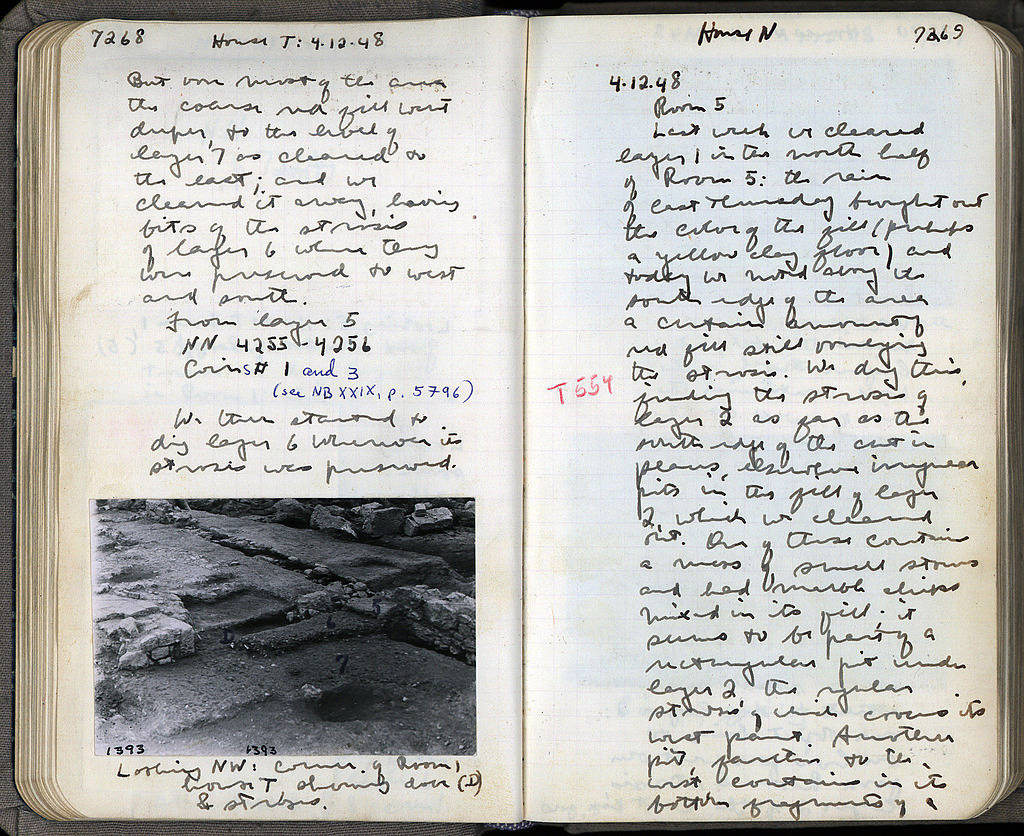 7268 House T: 4.12.48
But over most of the area
the coarse red fill went
deeper, to the level of
layer 7 as cleared to
the east; and we
cleared it away, leaving
bits of the strosis
of layer 6 where they
were preserved to west
and south.
From layer 5
NN 4255-4256
Coins# 1 and 3
(see NB XXIX, p. 5796)
We then started to
dig layer 6 wherever its
strosis was preserved.
D 6 5
7
1393 1393
Looking NW: corner of Room 1
House T showing door (D)
& strosis.
House N 7269
4.12.48
Room 5
Last week we cleared
layer 1 in the north half
of Room 5: the rain
of last Thursday brought out
the color of the fill (perhaps
a yellow clay floor) and
today we noted along the
south edge of the area
a certain amount of
red fill still overlying
the strosis. We dig this,
T 554
finding the strosis of
layer 2 as far as the
south edge of the cut in
places, elsewhere irregular
pits in the fill of layer
2, which we cleared
out. One of these contains
a mass of small stones
and had marble chips
mixed in its fill: it
seems to be part of a
rectangular pit under
layer 2 the regular
strosis of which covers its
west part. Another
pit, farther to the
west contains in its
bottom fragments of a